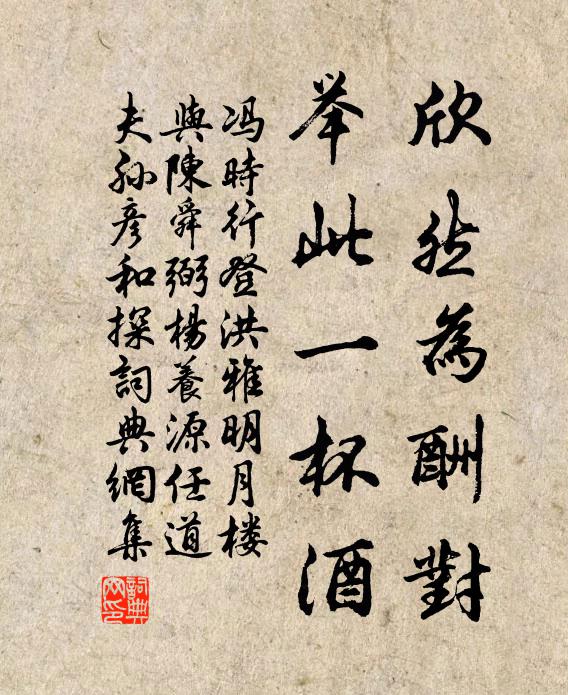 欣然為酬對
举此一杯酒
冯時行登洪雅明月楼
與陳舜弼楊養源任道
夫孙彦和探詞典網集
詞典